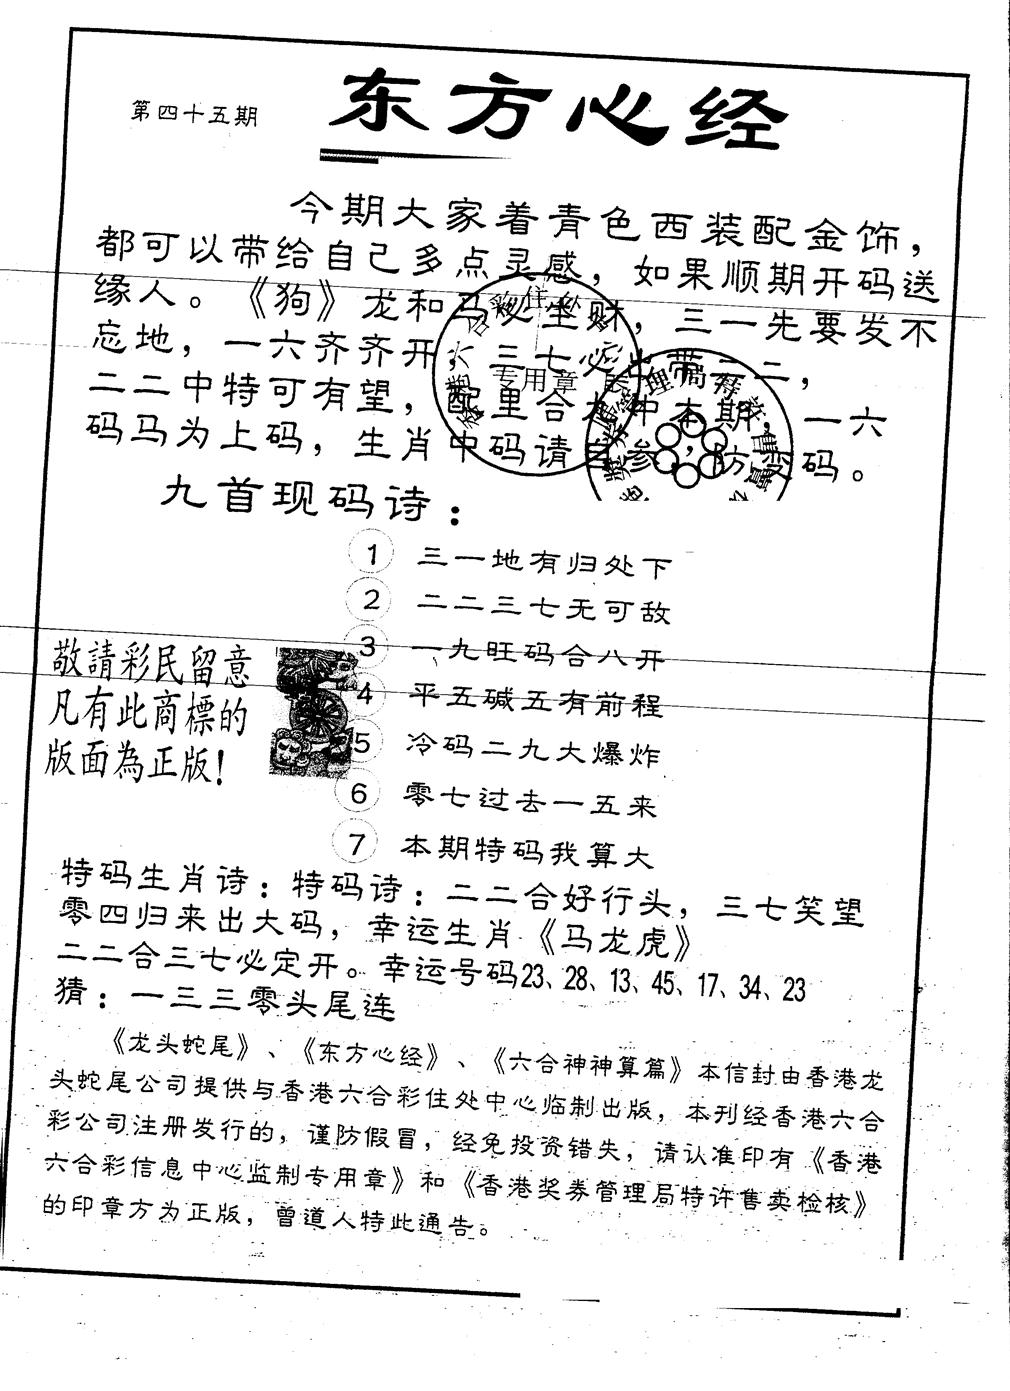 第四十五期
东方心经
今期大家着青色西装配金饰，
都可以带给自己多点灵感，如果顺期开码送
缘人。《狗》龙和马必生财，三一先要发不
忘地，一六齐齐开，三七必出带二二，
二二中特可有望，配里合九冲本期，一六
码马为上码，生肖中码请自参，防变码。
九首现码诗：
1 三一地有归处下
2 二二三七无可敌
3 一九旺码合八开
4 平五碱五有前程
5 冷码二九大爆炸
6 零七过去一五来
7 本期特码我算大
敬請彩民留意
凡有此商標的
版面為正版！
特码生肖诗：特码诗：二二合好行头，三七笑望
零四归来出大码，幸运生肖《马龙虎》
二二合三七必定开。幸运号码23、28、13、45、17、34、23
猜：一三三零头尾连
《龙头蛇尾》、《东方心经》、《六合神神算篇》本信封由香港龙
头蛇尾公司提供与香港六合彩住处中心临制出版，本刊经香港六合
彩公司注册发行的，谨防假冒，经免投资错失，请认准印有《香港
六合彩信息中心监制专用章》和《香港奖券管理局特许售卖检核》
的印章方为正版，曾道人特此通告。
专用章